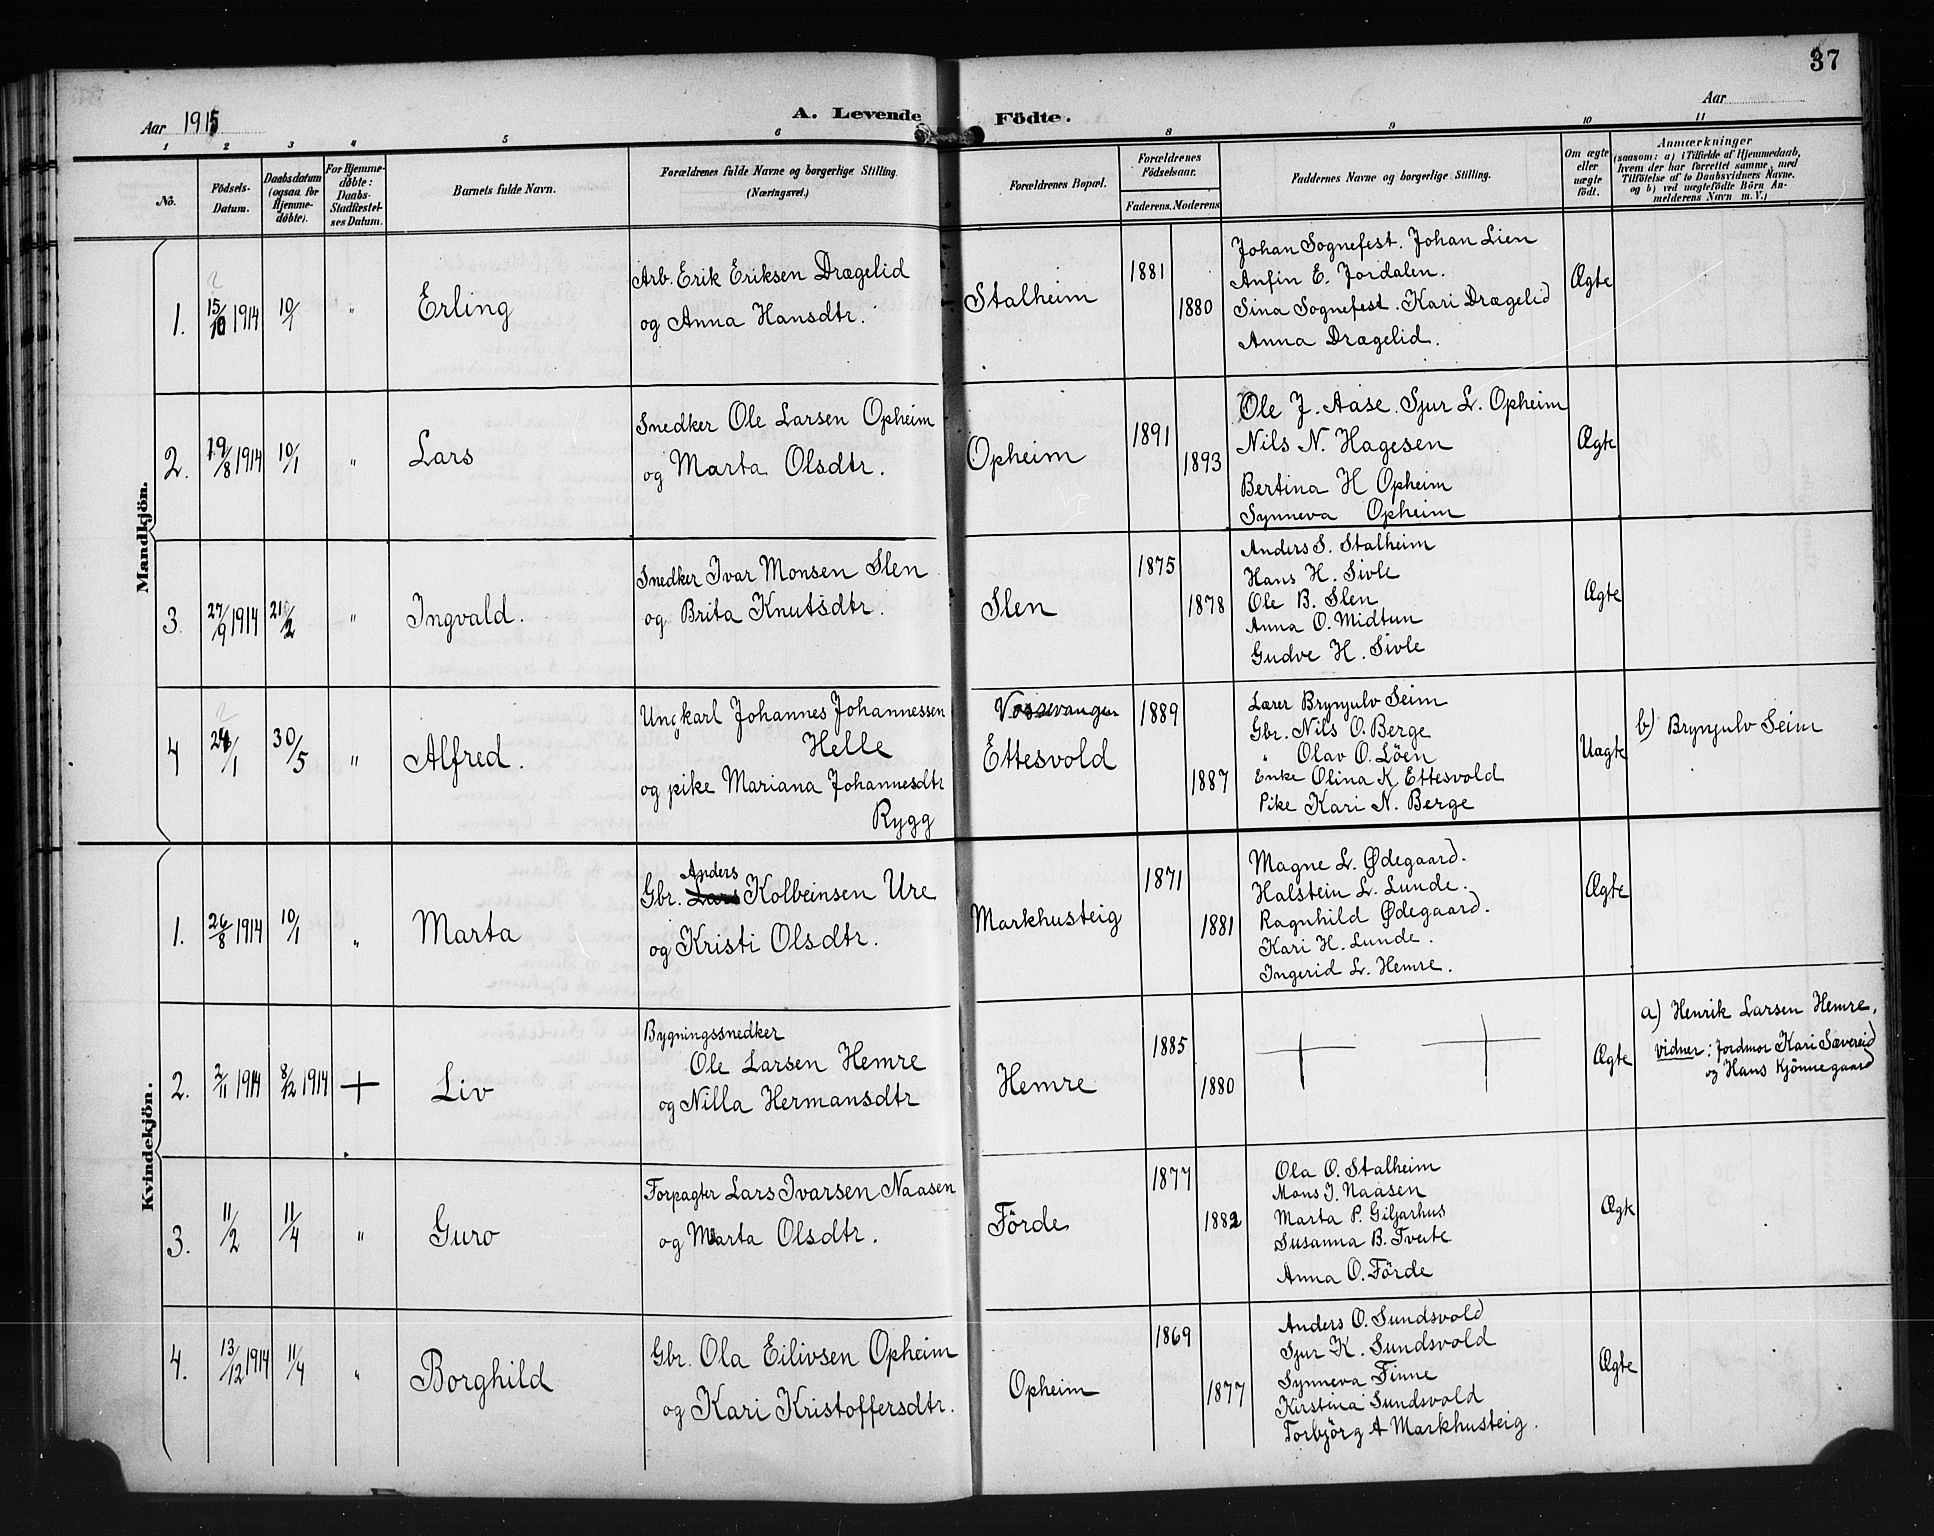 37
Aar 1915
A. Levende Födte.
Aar
1 2 3 4 5 6 8 9 10 11
No.
Födsels-Datum.
Daabsdatum (ogsaa for Hjemme-döbte).
For Hjemme-döbte: Daabs-Stadfæstel-ses Datum.
Barnets fulde Navn.
Forældrenes fulde Navne og borgerlige Stilling.
(Næringsvei.)
Forældrenes Bopæl.
Forældrenes Födselsaar.
Faderens. Moderens
Faddernes Navne og borgerlige Stilling.
Om ægte eller uægte födt.
Anmærkninger
(saasom: a) i Tilfælde af Hjemmedaab,
hvem der har forrettet samme, med
Tilföielse af to Daabsvidners Navne,
og b) ved uægtefödte Börn An-
melderens Navn m. V.)
Mandkjön.
1. 15/10 1914 10/1 " Erling
Arb. Erik Eriksen Drægelid
og Anna Hansdtr.
Stalheim 1881 1880
Johan Sognefest. Johan Lien
Anfin E. Jordalen.
Sina Sognefest. Kari Drægelid
Anna Drægelid.
Ægte
2. 19/8 1914 10/1 " Lars
Snedker Ole Larsen Opheim
og Marta Olsdtr.
Opheim 1891 1893
Ole J. Aase. Sjur L. Opheim
Nils N. Hagesen
Bertina H Opheim
Synneva Opheim
Ægte
3. 27/9 1914 21/2 " Ingvald.
Snedker Ivar Monsen Slen
og Brita Knutsdtr.
Slen 1875 1878
Anders S. Stalheim
Hans H. Sivle
Ole B. Slen
Anna O. Midtun
Gudve H. Sivle
Ægte
4 24/1 30/5 " Alfred.
Ungkarl Johannes Johannessen
Helle
og pike Mariana Johannesdtr
Rygg
Vossevangen
Ettesvold 1889 1887
Lærer Brynjulv Seim
Gbr. Nils O. Berge
" Olav O. Löen
Enke Olina K. Ettesvold
Pike Kari N. Berge
Uægte
b) Brynjulv Seim
Kvindekjön.
1. 26/8 1914 10/1 " Marta
Anders
Gbr. Lars Kolbeinsen Ure
og Kristi Olsdtr.
Markhusteig 1871 1881
Magne L. Ødegaard.
Halstein L. Lunde.
Ragnhild Ødegaard.
Kari H. Lunde.
Ingerid L. Hemre.
Ægte
2. 2/11 1914 8/12 1914 + Liv
Bygningssnedker
Ole Larsen Hemre
og Nilla Hermansdtr
Hemre 1885 1880
Ægte
a) Henrik Larsen Hemre,
vidner: Jordmor Kari Sævereid
og Hans Kjönnegaard
3. 11/2 11/4 " Guro
Forpagter Lars Ivarsen Naasen
og Marta Olsdtr.
Förde 1877 1882
Ola O. Stalheim
Mons J. Naasen
Marta P. Giljarhus
Susanna B. Tveite
Anna O. Förde
Ægte
4. 13/12 1914 11/4 " Borghild
Gbr. Ola Eilivsen Opheim
og Kari Kristoffersdtr.
Opheim 1869 1877
Anders O. Sundsvold
Sjur K. Sundsvold
Synneva Finne
Kirstina Sundsvold
Torbjörg A Markhusteig.
Ægte